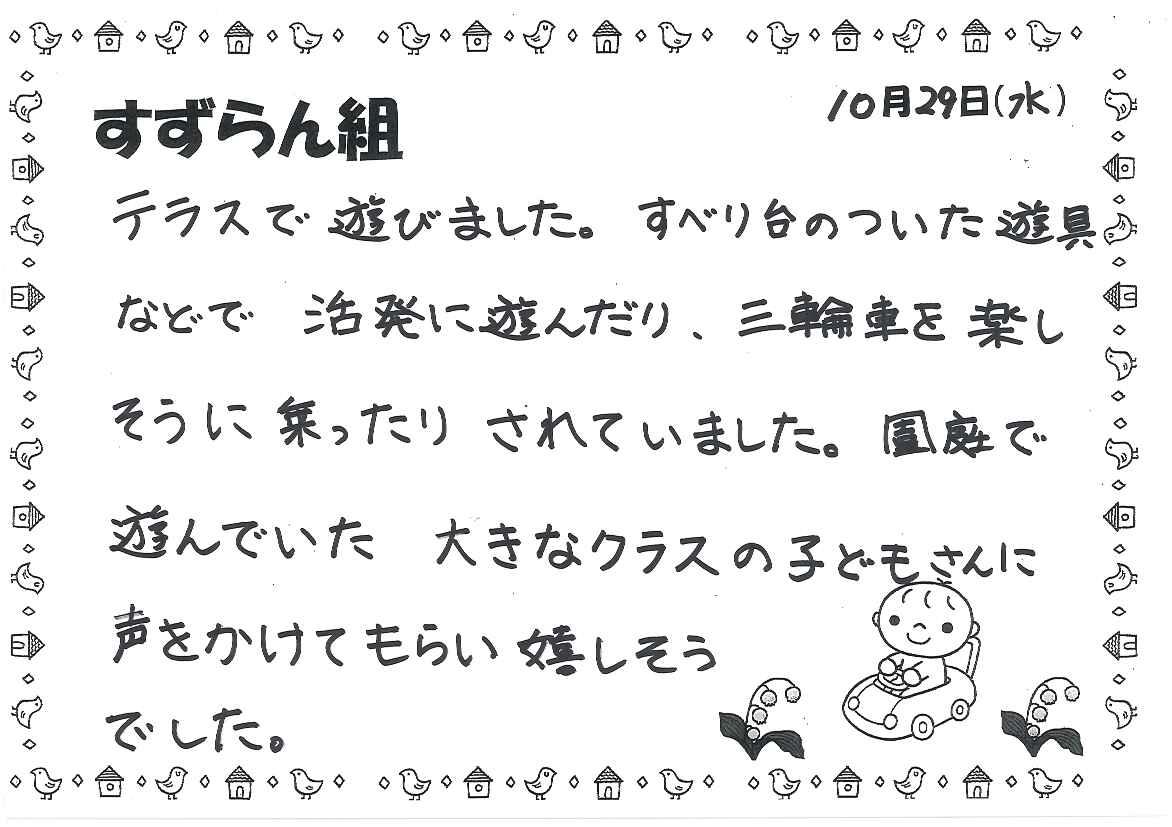 すずらん組
10月29日(水)
テラスで遊びました。すべり台のついた遊具
などで 活発に遊んだり、三輪車を楽し
そうに乗ったりされていました。園庭で
遊んでいた 大きなクラスの子どもさんに
声をかけてもらい嬉しそう
でした。